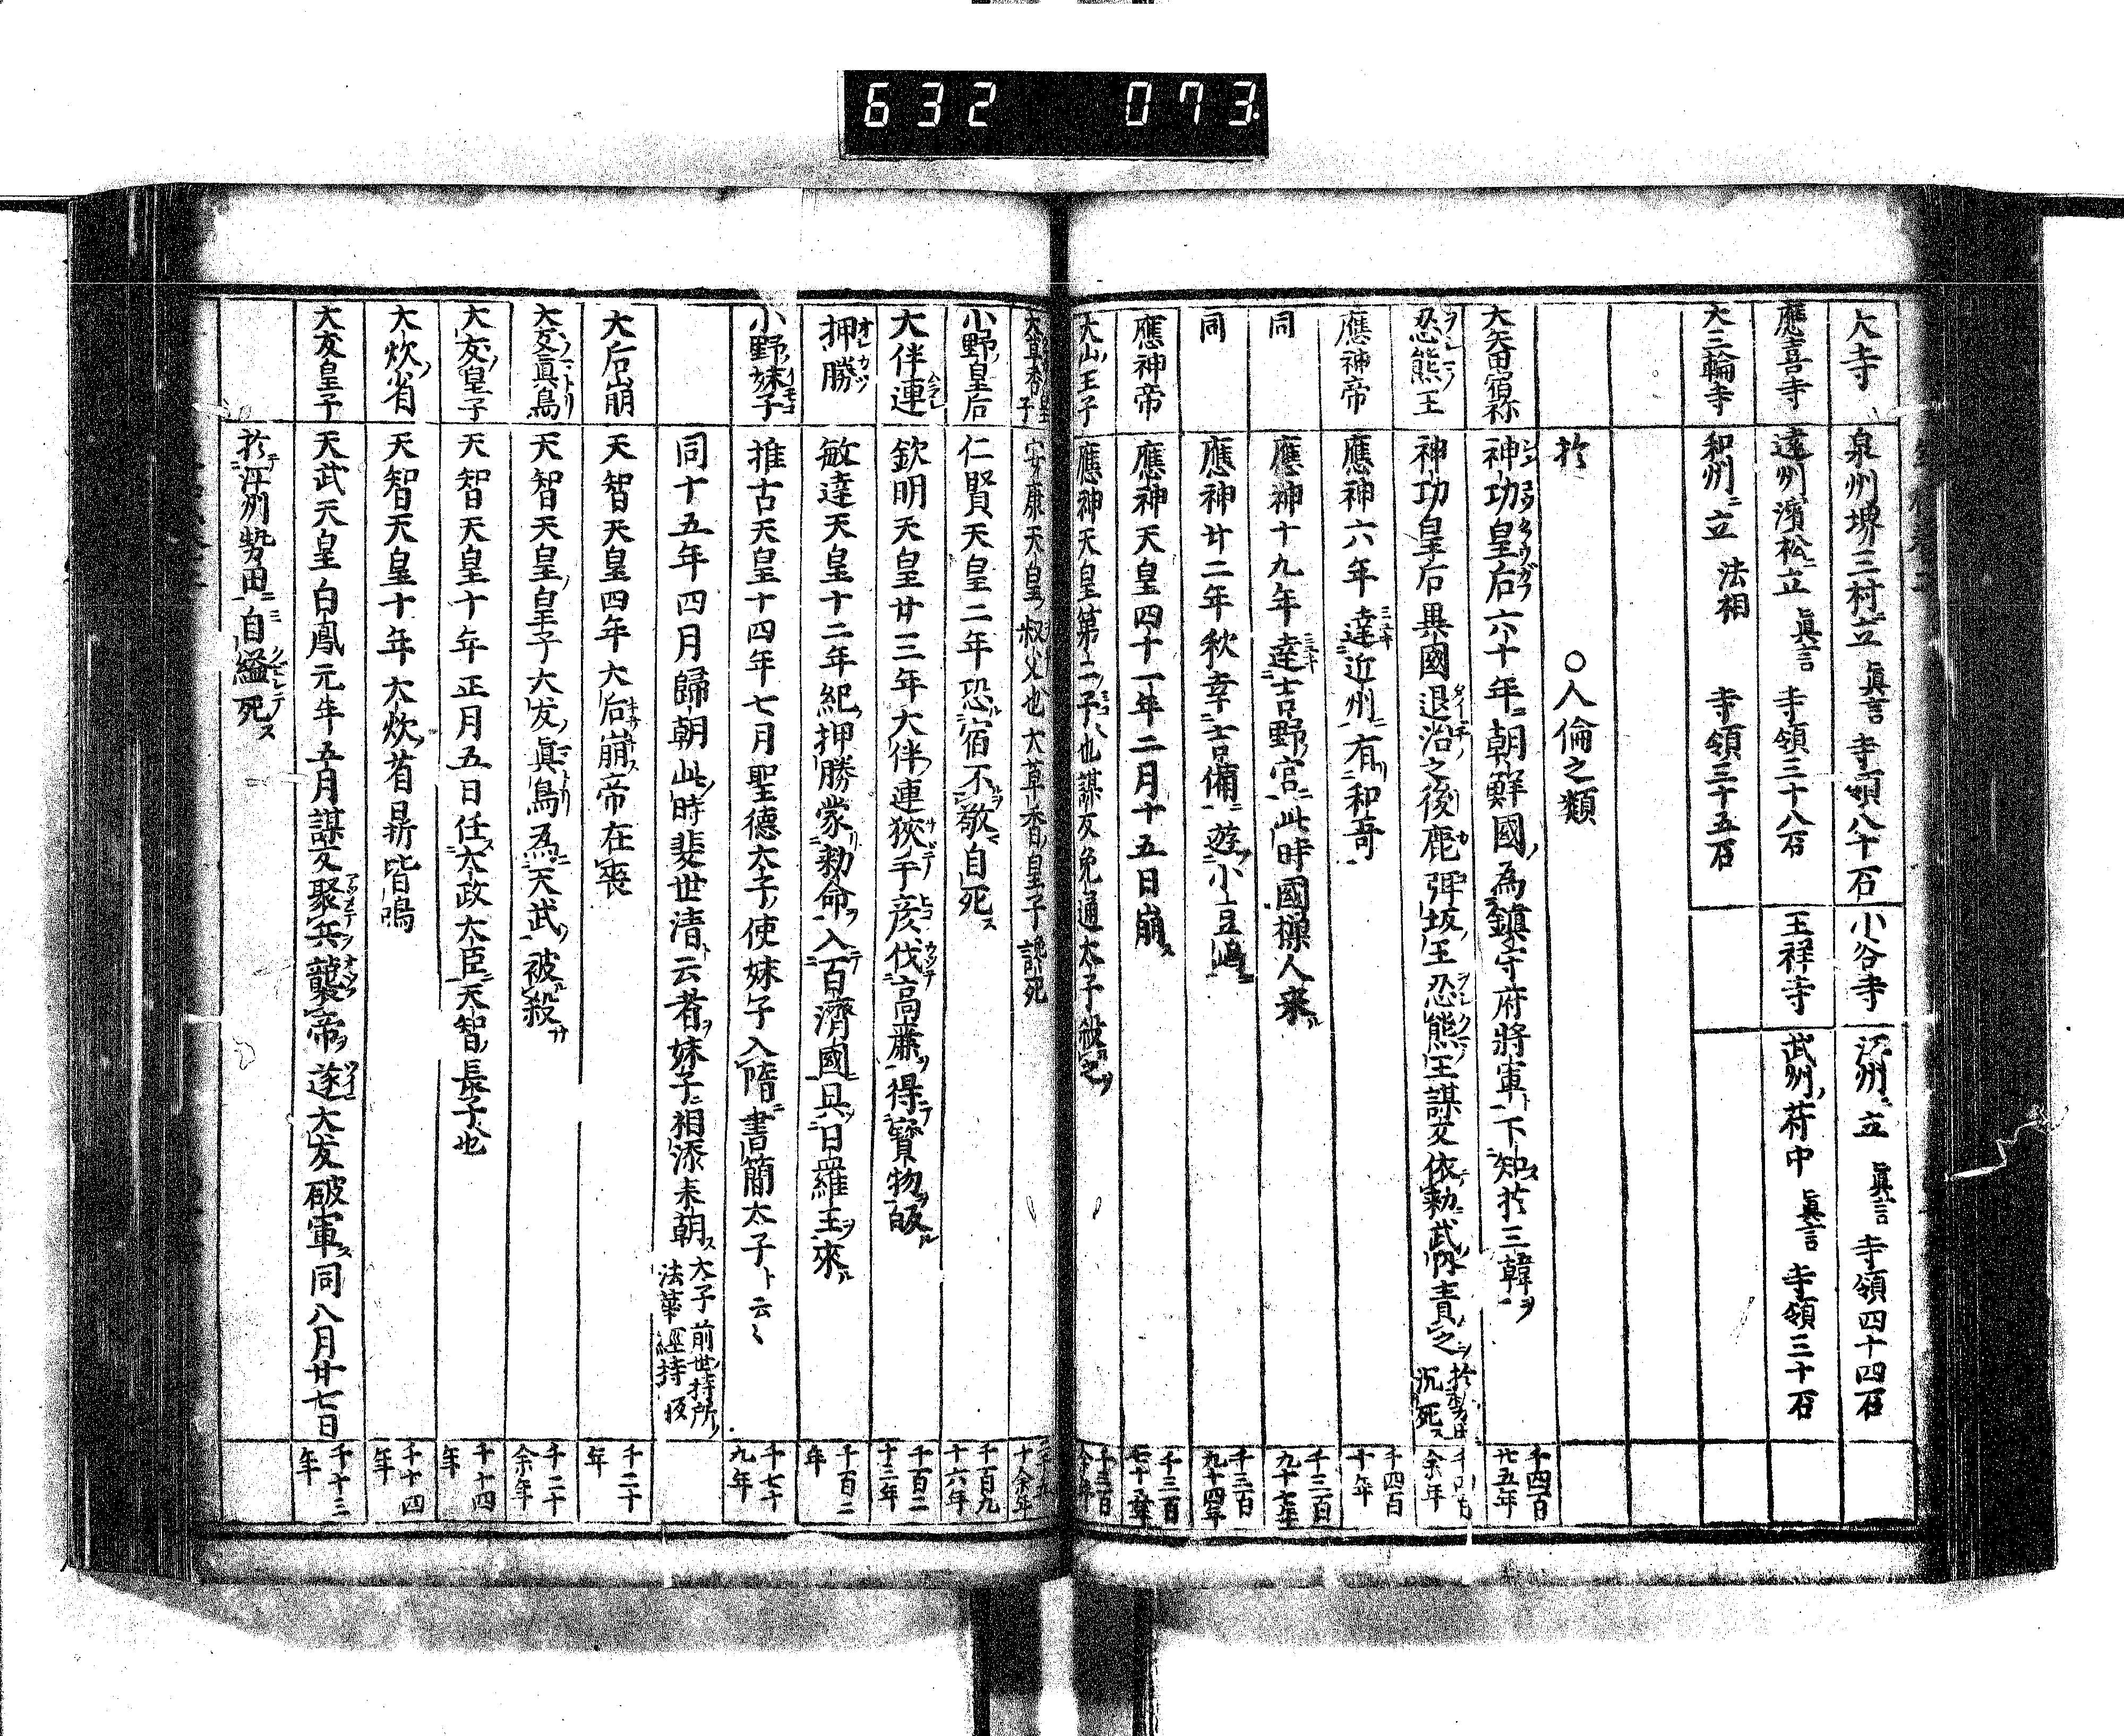 632 073
大寺 泉州堺三村ニ立 眞言 寺領八十石 小谷寺 江州ニ立 眞言 寺領四十四石
應喜寺 遠州濱松ニ立 眞言 寺領三十八石 玉祥寺 武州府中 眞言 寺領三十石
大三輪寺 和州ニ立 法相 寺領三十五石
於 〇人倫之類
大矢田宿祢 神功皇后六十年朝鮮國為鎮守府將軍下知於三韓 千四百廿五年
忍熊王 神功皇后異國退治之後麛弾坂王忍熊王謀反依勅武内責之 於勢田沉死 余年
應神帝 應神六年達近州有和哥 千四百十年
同 應神十九年達吉野宮此時國樔人来 千三百九十七年
同 應神廿二年秋幸吉備遊小豆嶋 千三百九十四年
應神帝 應神天皇四十一年二月十五日崩 千三百七十五年
大山王子 應神天皇第二子也謀反免通太子殺之 千三百
大草香皇子 安康天皇叔父也大草香皇子讒死 十余年
小野皇后 仁賢天皇二年恐宿不敬自死 千百九十六年
大伴連 欽明天皇廿三年大伴連狹手彦伐高麗得寳物皈 千百二十三年
押勝 敏達天皇十二年紀押勝蒙勅命入百濟國具日羅王來 千百二年
小野妹子 推古天皇十四年七月聖德太子使妹子入隋書簡太子ト云々 千七十九年
同十五年四月歸朝此時斐世清ト云者妹子相添来朝 太子前世持所法華經持皈
大后崩 天智天皇四年大后崩帝在喪 千二十年
大友眞鳥 天智天皇皇子大友眞鳥為天武被殺 千二十余年
大友皇子 天智天皇十年正月五日任太政大臣天智長子也 千十四年
大炊省 天智天皇十年大炊省鼎皆鳴 千十四年
大友皇子 天武天皇白鳳元年五月謀反聚兵襲帝遂大友破軍同八月廿七日 千十三年
於江州勢田自縊死